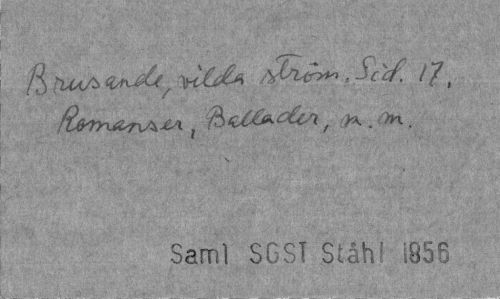 Brusande, vilda ström. Sid. 17.
Romanser, Ballader, m. m.
Saml SGST Ståhl 1856